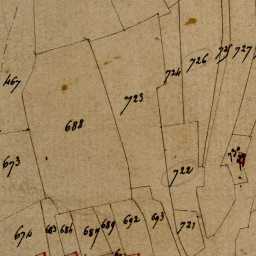 467
688
723
724
726
725
727
673
722
674
685
686
687
689
692
693
721